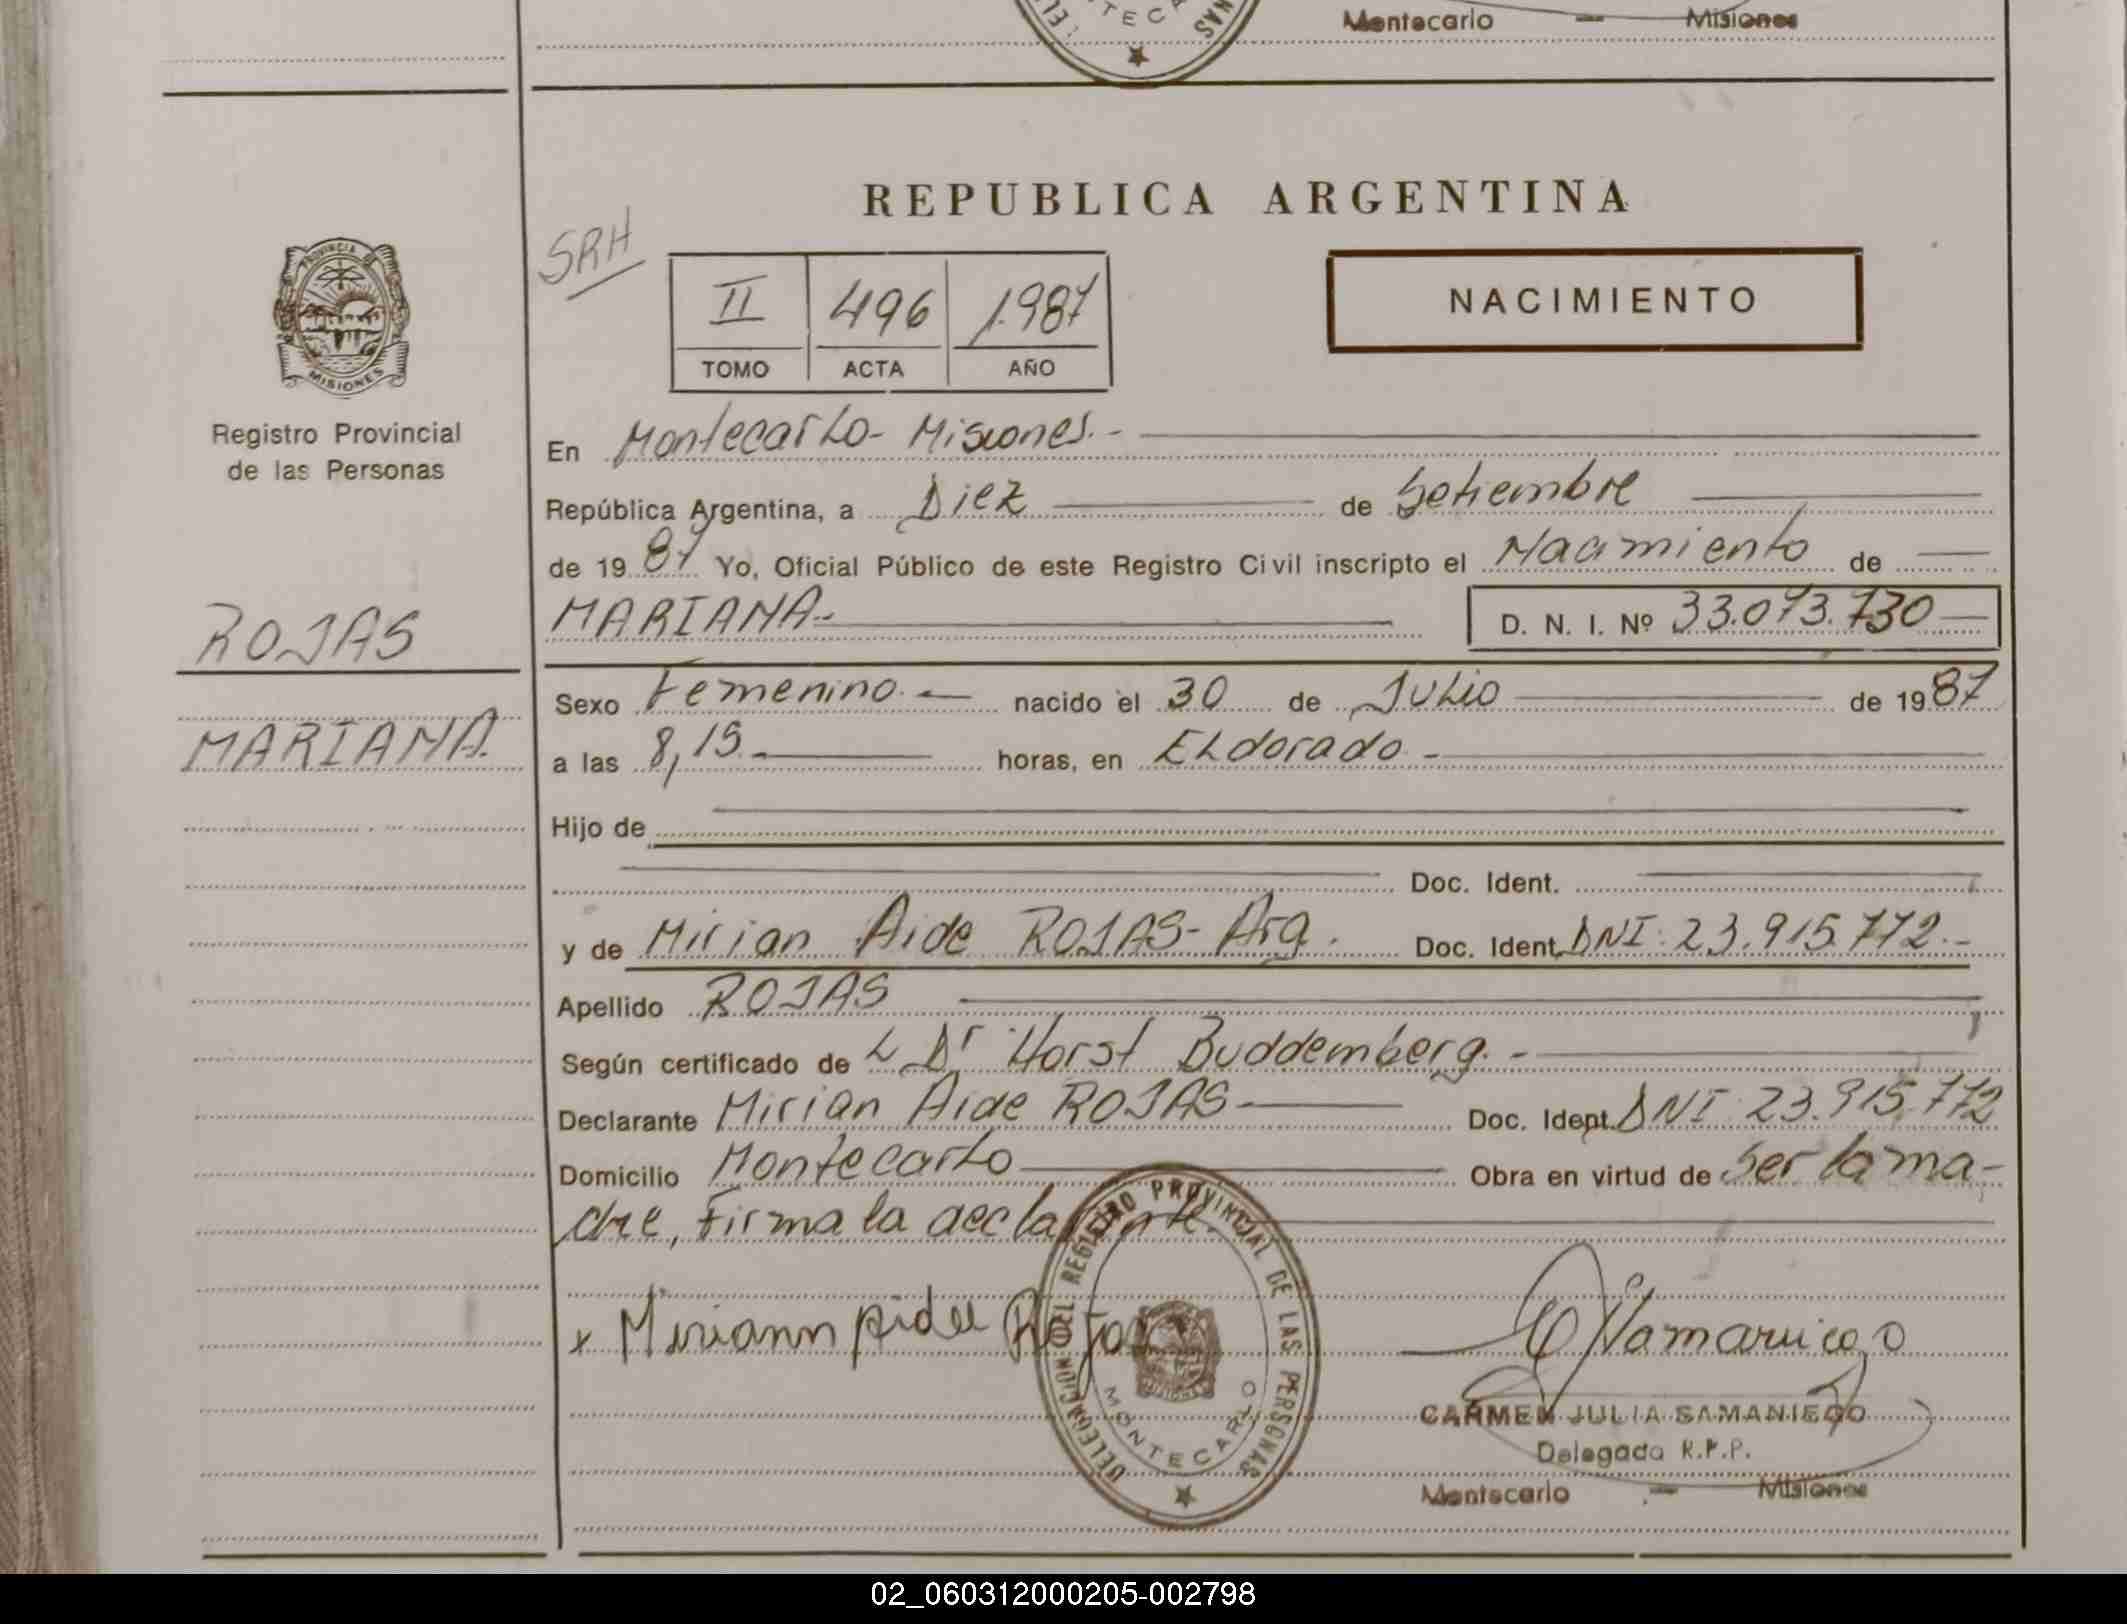 Montecarlo — Misiones
REPUBLICA ARGENTINA
SRH
II 496 1.987
TOMO ACTA AÑO
NACIMIENTO
PROVINCIA DE
MISIONES
Registro Provincial
de las Personas
ROJAS
MARIANA
En Montecarlo- Misiones.-
República Argentina, a Diez de Setiembre
de 1987 Yo, Oficial Público de este Registro Civil inscripto el Nacimiento de
MARIANA.- D. N. I. Nº 33.073.730
Sexo Femenino.- nacido el 30 de Julio de 1987
a las 8,15.- horas, en Eldorado.-
Hijo de
Doc. Ident.
y de Mirian Aide ROJAS- Arg. Doc. Ident. DNI: 23.915.772.-
Apellido ROJAS
Según certificado de L Dr Horst Buddemberg.-
Declarante Mirian Aide ROJAS- Doc. Ident. DNI: 23.915.772
Domicilio Montecarlo Obra en virtud de Ser la ma-
dre, Firma la declarante.
x Miriann Rojas
DELEGACION DEL REGISTRO PROVINCIAL DE LAS PERSONAS
MONTECARLO
CARMEN JULIA SAMANIEGO
Delegada R.P.P.
Montecarlo — Misiones
02_060312000205-002798